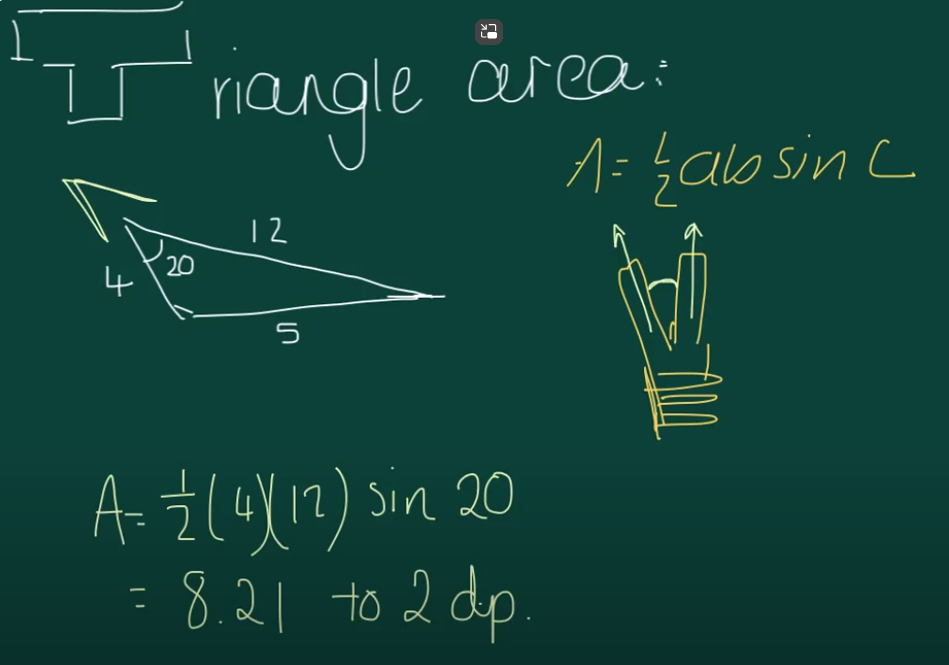 Triangle area:
A = ½ab sin C
12
20
4
5
A = ½(4)(12) sin 20
= 8.21 to 2 dp.